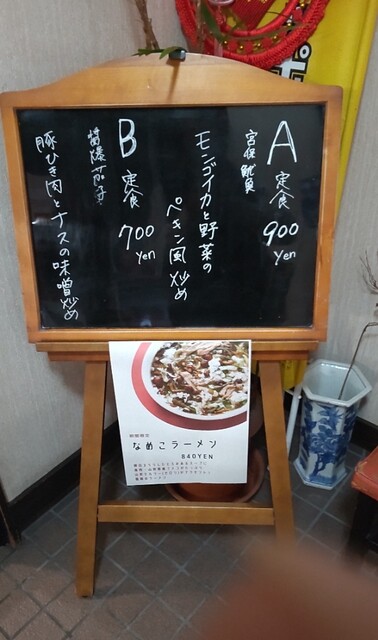 A 定食
900
Yen
宮保魷魚
モンゴイカと野菜の
ペキン風炒め
B 定食
700
Yen
醤爆茄子
豚ひき肉とナスの味噌炒め
期間限定
なめこラーメン
840YEN